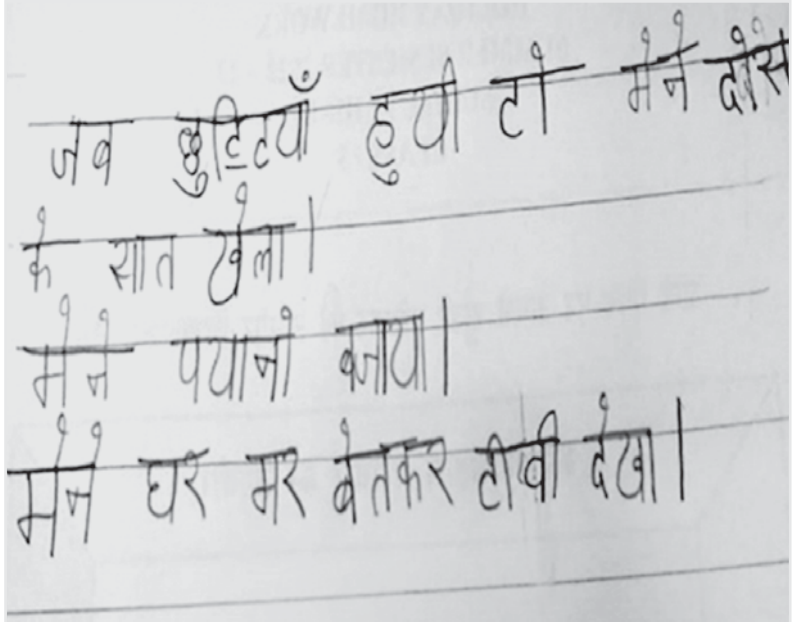 जब छुट्टियाँ हुयी टो मेने दोस
के सात खेला।
मेने पयानो बजाया।
मेने घर मर बेतकर टीबी देखा।